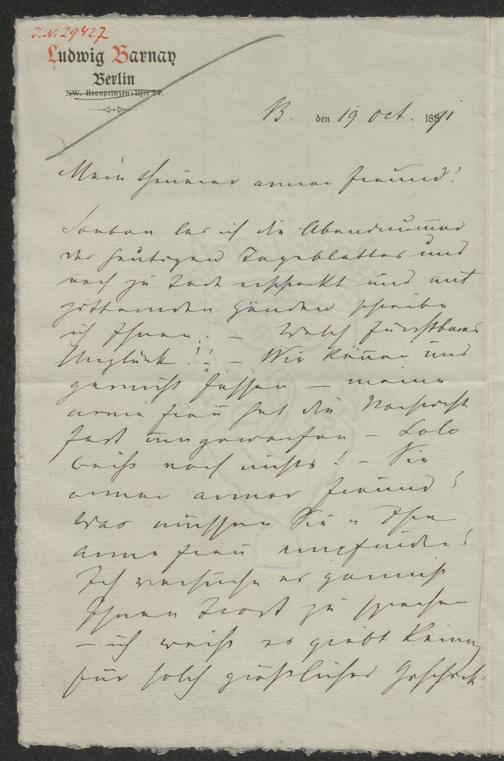 I.N. 29427
Ludwig Barnay
Berlin
NW. Kronprinzen-Ufer
B. den 19 Oct. 1891
Mein theurer armer Freund!
Soeben las ich die Abendnummer
des heutigen Tageblattes und
noch zu Tode erschreckt und mit
zitternden Händen schreibe
ich Ihnen. – Welch furchtbares
Unglück!! – Wir können uns
garnicht fassen – meine
arme Frau hat die Nachricht
fast umgeworfen – Lolo
weiß noch nichts! – Sie
armer armer Freund!
Was müssen Sie u Ihre
arme Frau empfinden!
Ich versuche es garnicht
Ihnen Trost zu sprechen
– ich weiß es giebt keinen
für solch gräßliches Geschick